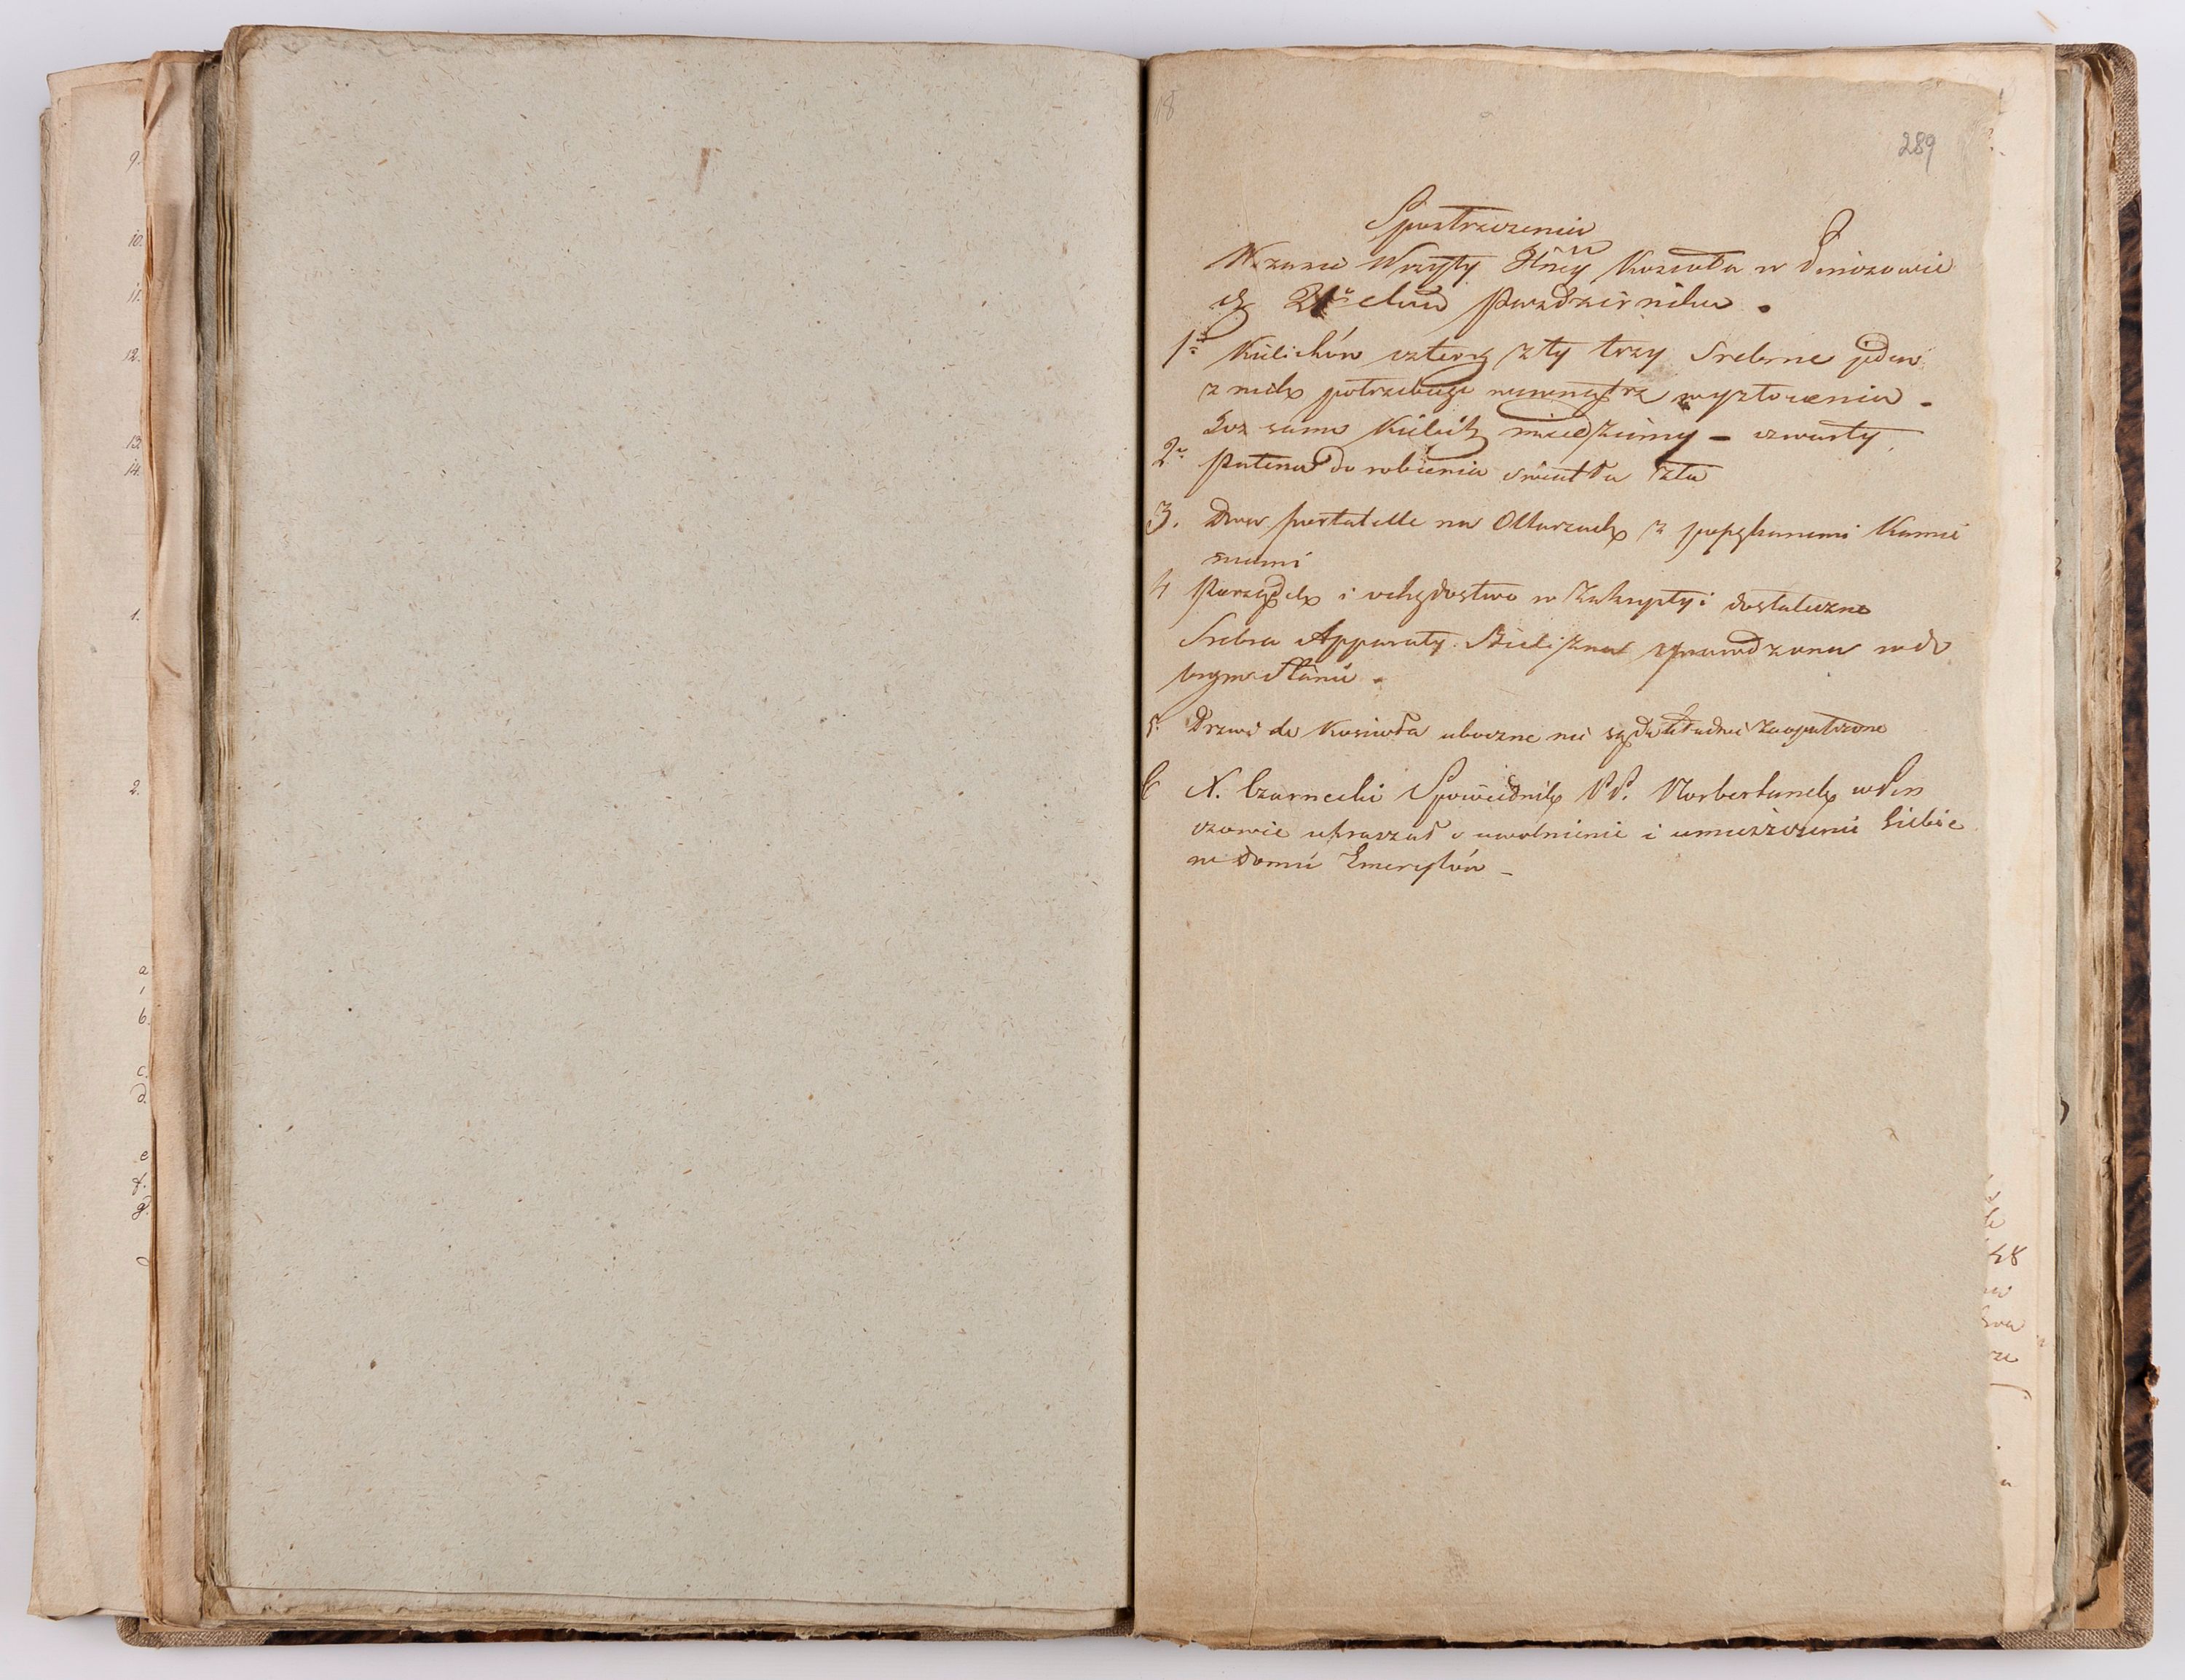 9.
10.
11.
12.
13
14.
1.
2.
a
b
c.
d.
e
f.
g.
18
289
Spostrzeżenia
W czasie Wizyty Kościoła w Pinczowie
d 21 Października.
1o Kielichów cztery / zty trzy Srebrne jeden
z nich potrzebuje wewnątrz wyzłocenia -
Kielich miedziany - czwarty
2o Patena do robienia światła zła
3. Dwa portatelle na Ołtarzach z popękanemi Kamie
niami
4 Porządek i ochędostwo w Zakrystyi dostateczne
Srebra Apparaty Bielizna sprawdzona w do
brym stanie.
5. Drzwi do Kościoła uboczne nie są dokładnie zaopatrzone
6 X. Czarnecki Spowiednik PP. Norbertanek w Pin
czowie upraszał o uwolnienie i umieszczenie siebie
w Domu Emerytów -
48